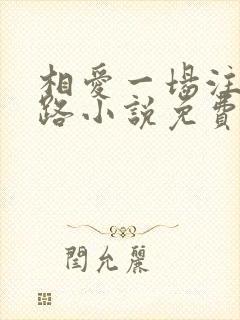 相愛一場注
路小説免費
閆允麗